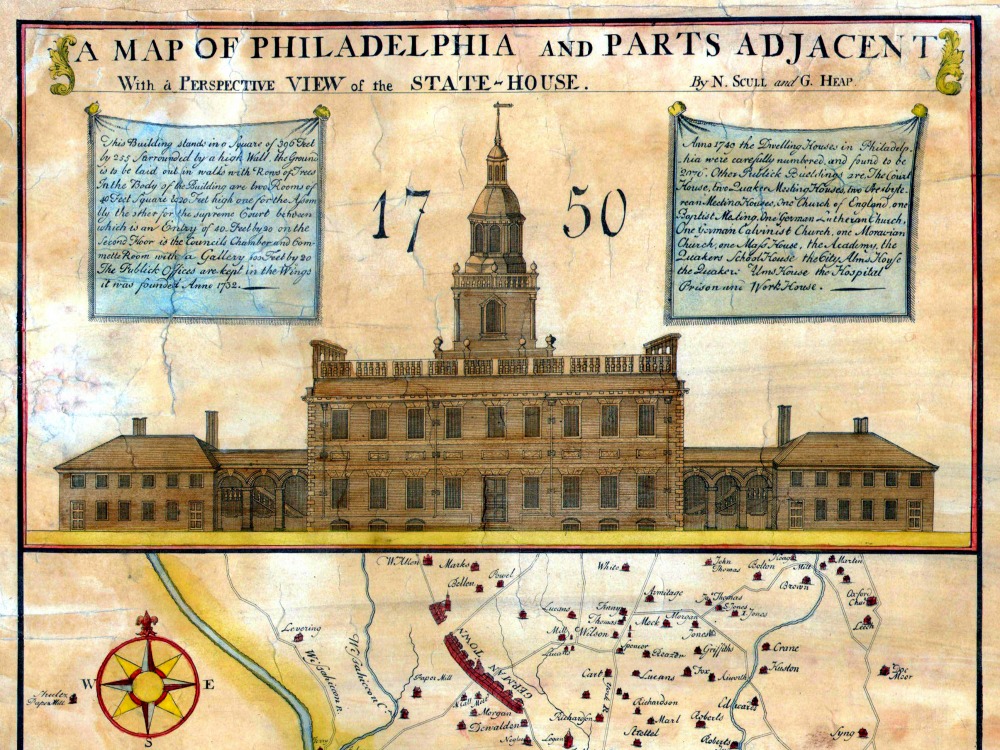 A MAP OF PHILADELPHIA AND PARTS ADJACENT
With a PERSPECTIVE VIEW of the STATE-HOUSE. By N. SCULL and G. HEAP.
This Building stands in a Square of 396 Feet
by 255 Surrounded by a high Wall, the Ground
is to be laid out in walks with Rows of Trees
In the Body of the Building are two Rooms of
40 Feet Square & 20 Feet high one for the Assem
bly the other for the supreme Court between
which is an Entry of 40 Feet by 20 on the
Second Floor is the Councils Chamber and Com-
mette Room with a Gallery 100 Feet by 20
The Publick Offices are kept in the Wings
it was founded Anno 1732.
17 50
Anno 1749 the Dwelling Houses in Philadelp-
hia were carefully numbered, and found to be
2076. Other Publick Buildings are, The Court
House, two Quaker Meeting Houses, two Presbyte-
rean Meeting Houses, One Church of England, one
Baptist Meeting, One German Lutheran Church,
One German Calvinist Church, one Moravian
Church, one Mass House, the Academy, the
Quakers School House the City Alms House
the Quakers Alms House the Hospital
Prison and Work House.
W. Allen
Marks
Bellen
Powel
White
John
Thomas
Bolton
Mill
Martin
Brown
Oxford
Chur
Leech
Armitage
Thomas
Jones
Jones
Levering
Lucans
Thomas
Mill
Wilson
Morgan
Jones
Spencer
Griffiths
Crane
GERMAN TOWN
Wissahiccon R.
Wissahiccon C.
W
E
S
Paper Mill
Cart
Lucans
Fox
Huston
Doc
Moor
Paper Mill
Morgan
Dewalden
York R.
Richardson
Richardson
Edwards
Marl
Roberts
Logan
Stettel
Roberts
Syng